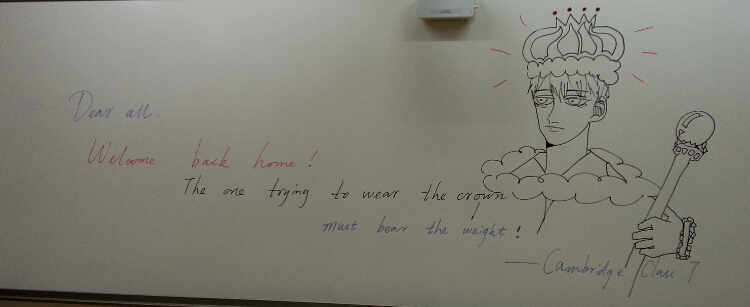 Dear all.
Welcome back home!
The one trying to wear the crown
must bear the weight!
—Cambridge Class 7